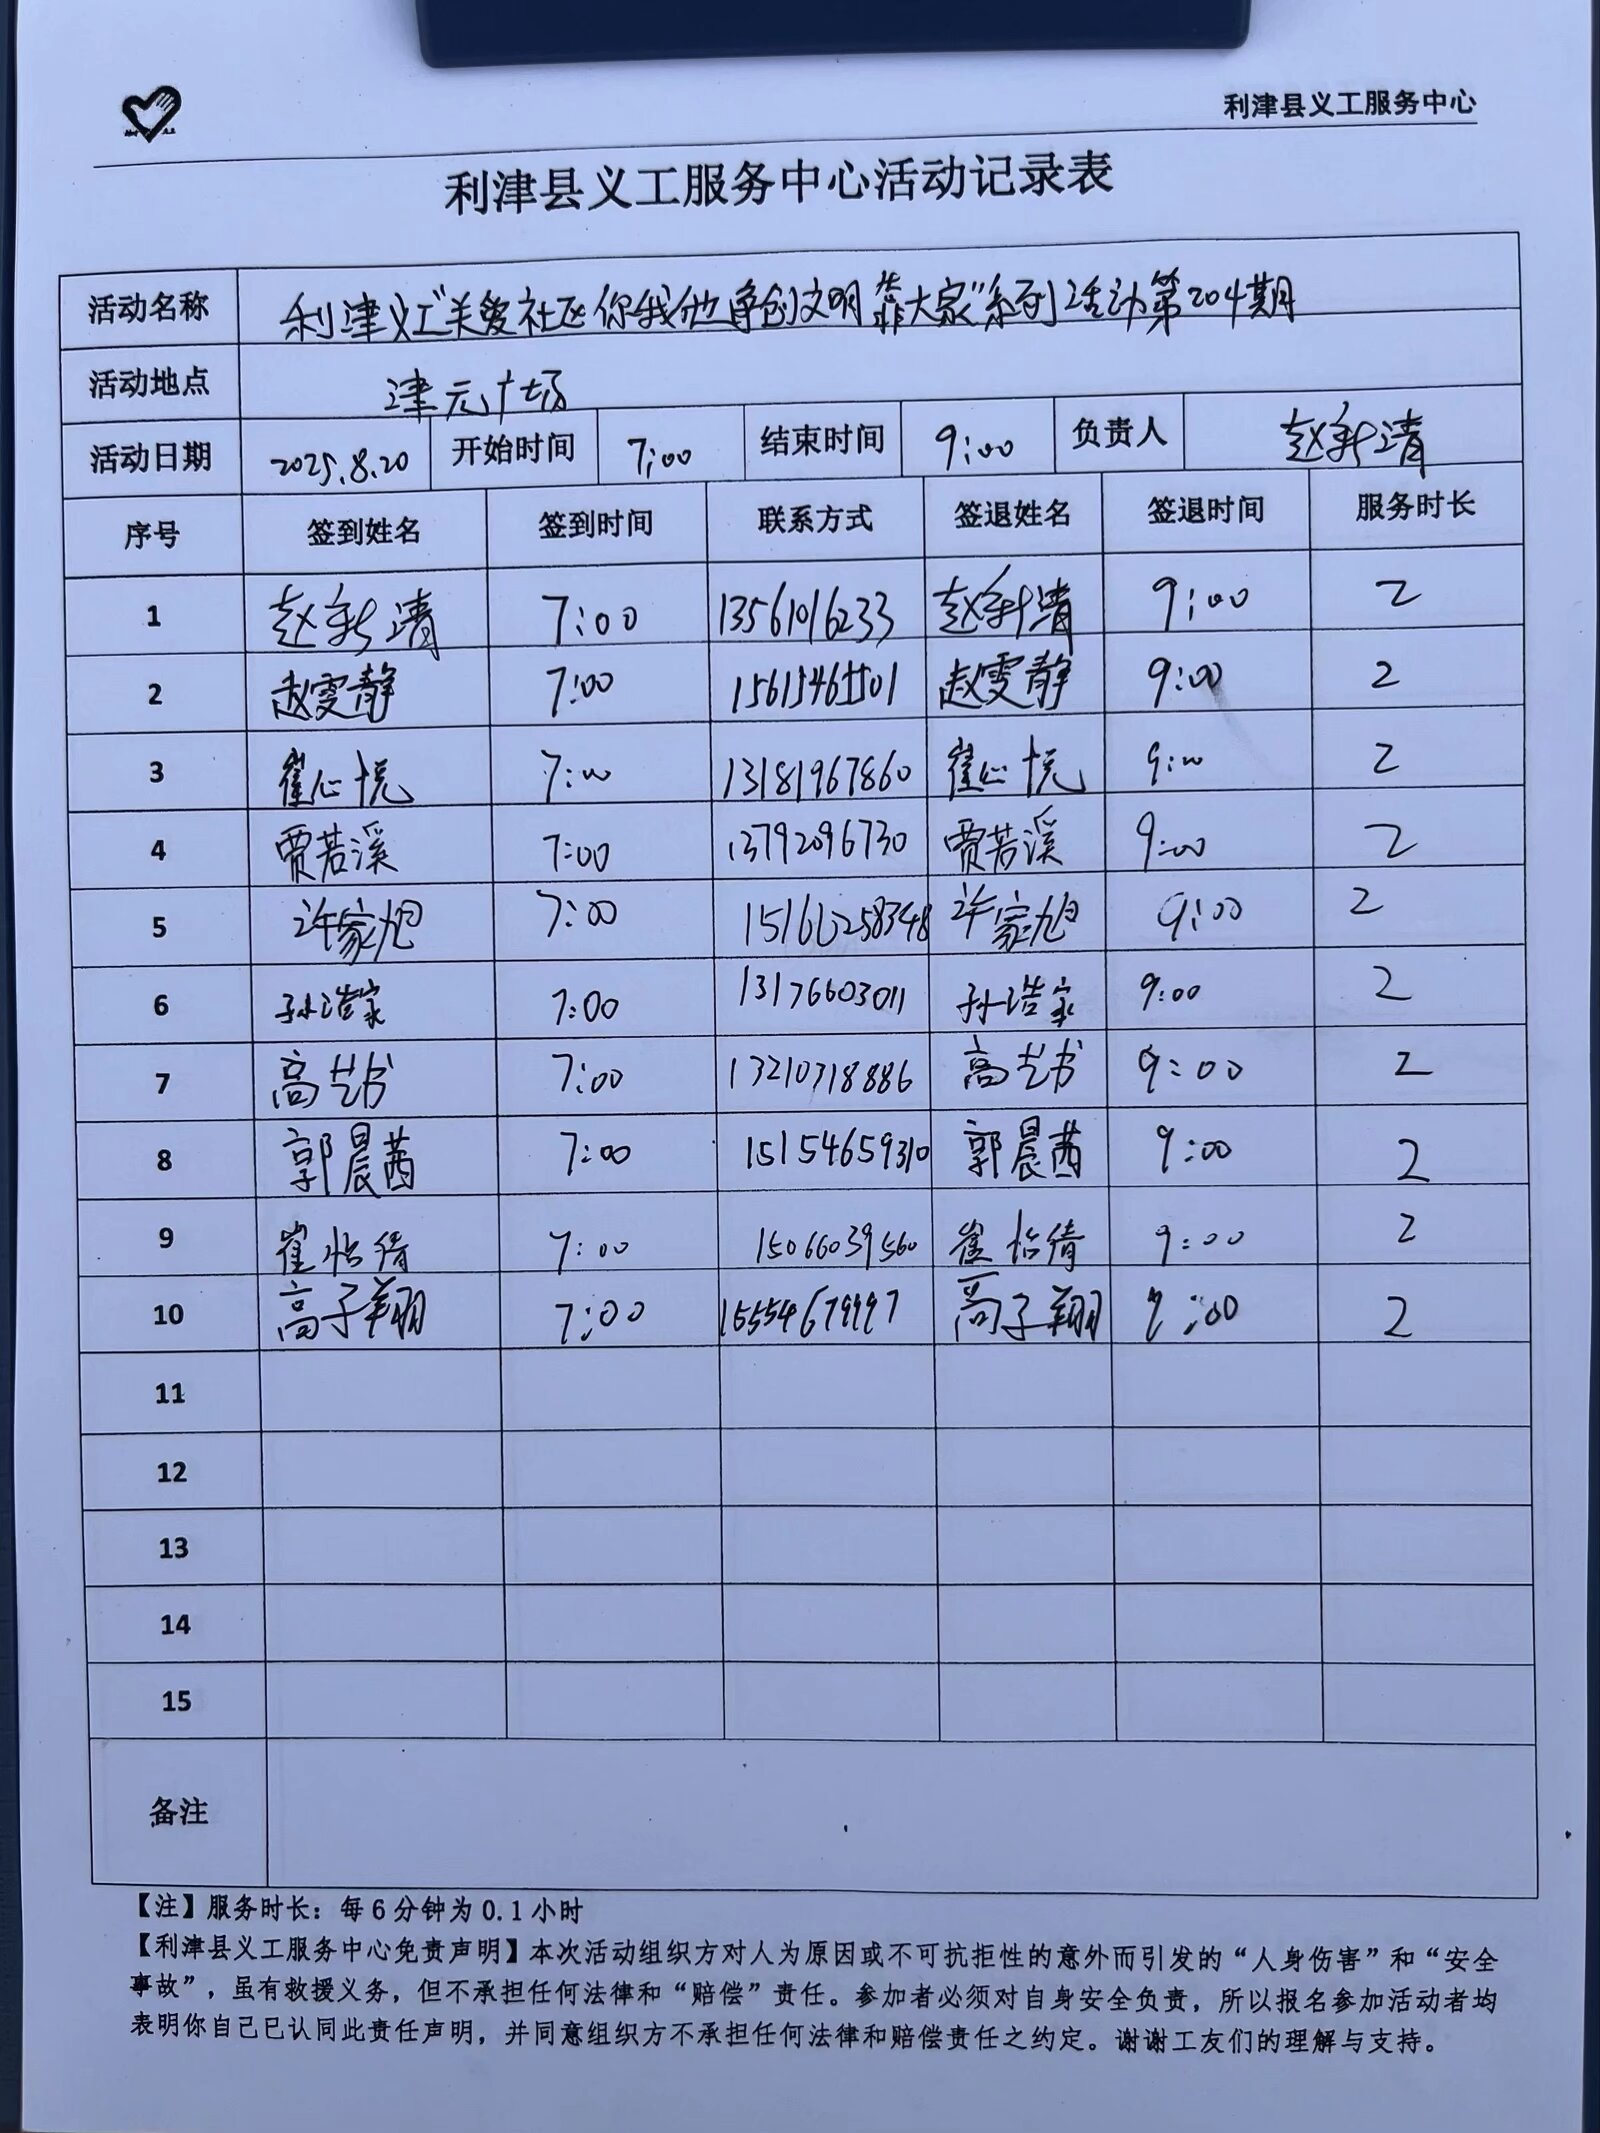 利津县义工服务中心
利津县义工服务中心活动记录表
活动名称 利津义工"关爱社区你我他争创文明靠大家"系列活动第204期
活动地点 津元广场
活动日期 2025.8.20 开始时间 7:00 结束时间 9:00 负责人 赵新清
序号 签到姓名 签到时间 联系方式 签退姓名 签退时间 服务时长
1 赵新清 7:00 13561016233 赵新清 9:00 2
2 赵雯静 7:00 15615461501 赵雯静 9:00 2
3 崔心悦 7:00 13181967860 崔心悦 9:00 2
4 贾若溪 7:00 13792096730 贾若溪 9:00 2
5 许家旭 7:00 许家旭 9:00 2
6 孙浩家 7:00 13176603011 孙浩家 9:00 2
7 高艺书 7:00 13210318886 高艺书 9:00 2
8 郭晨茜 7:00 15154659310 郭晨茜 9:00 2
9 崔怡倩 7:00 15066039560 崔怡倩 9:00 2
10 高子翔 7:00 15554679997 高子翔 9:00 2
11
12
13
14
15
备注
【注】服务时长：每6分钟为0.1小时
【利津县义工服务中心免责声明】本次活动组织方对人为原因或不可抗拒性的意外而引发的“人身伤害”和“安全
事故”，虽有救援义务，但不承担任何法律和“赔偿”责任。参加者必须对自身安全负责，所以报名参加活动者均
表明你自己已认同此责任声明，并同意组织方不承担任何法律和赔偿责任之约定。谢谢工友们的理解与支持。